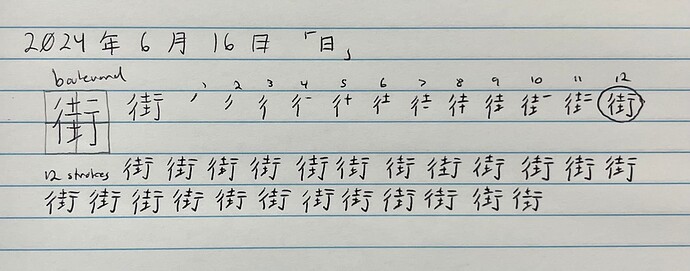 2024年6月16日「日」
boulevard 1 2 3 4 5 6 7 8 9 10 11 12
街 街 街
12 strokes 街 街 街 街 街 街 街 街 街 街 街 街
街 街 街 街 街 街 街 街 街 街 街 街